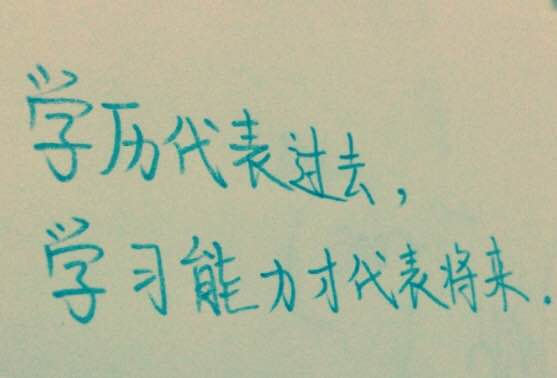 学历代表过去，
学习能力才代表将来.